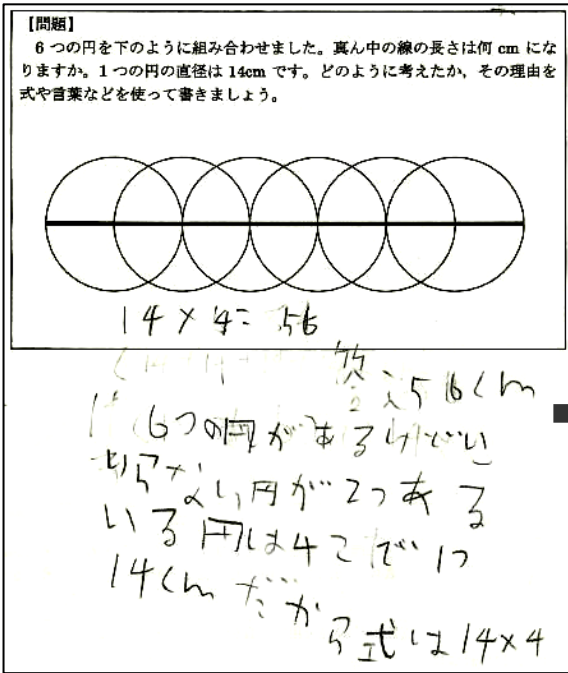 【問題】
6つの円を下のように組み合わせました。真ん中の線の長さは何 cm にな
りますか。1つの円の直径は 14cm です。どのように考えたか、その理由を
式や言葉などを使って書きましょう。
14×4=56
答え56cm
6つの円があるけどい
らない円が2つある
いる円は4こで1つ
14cmだか
ら式は14×4